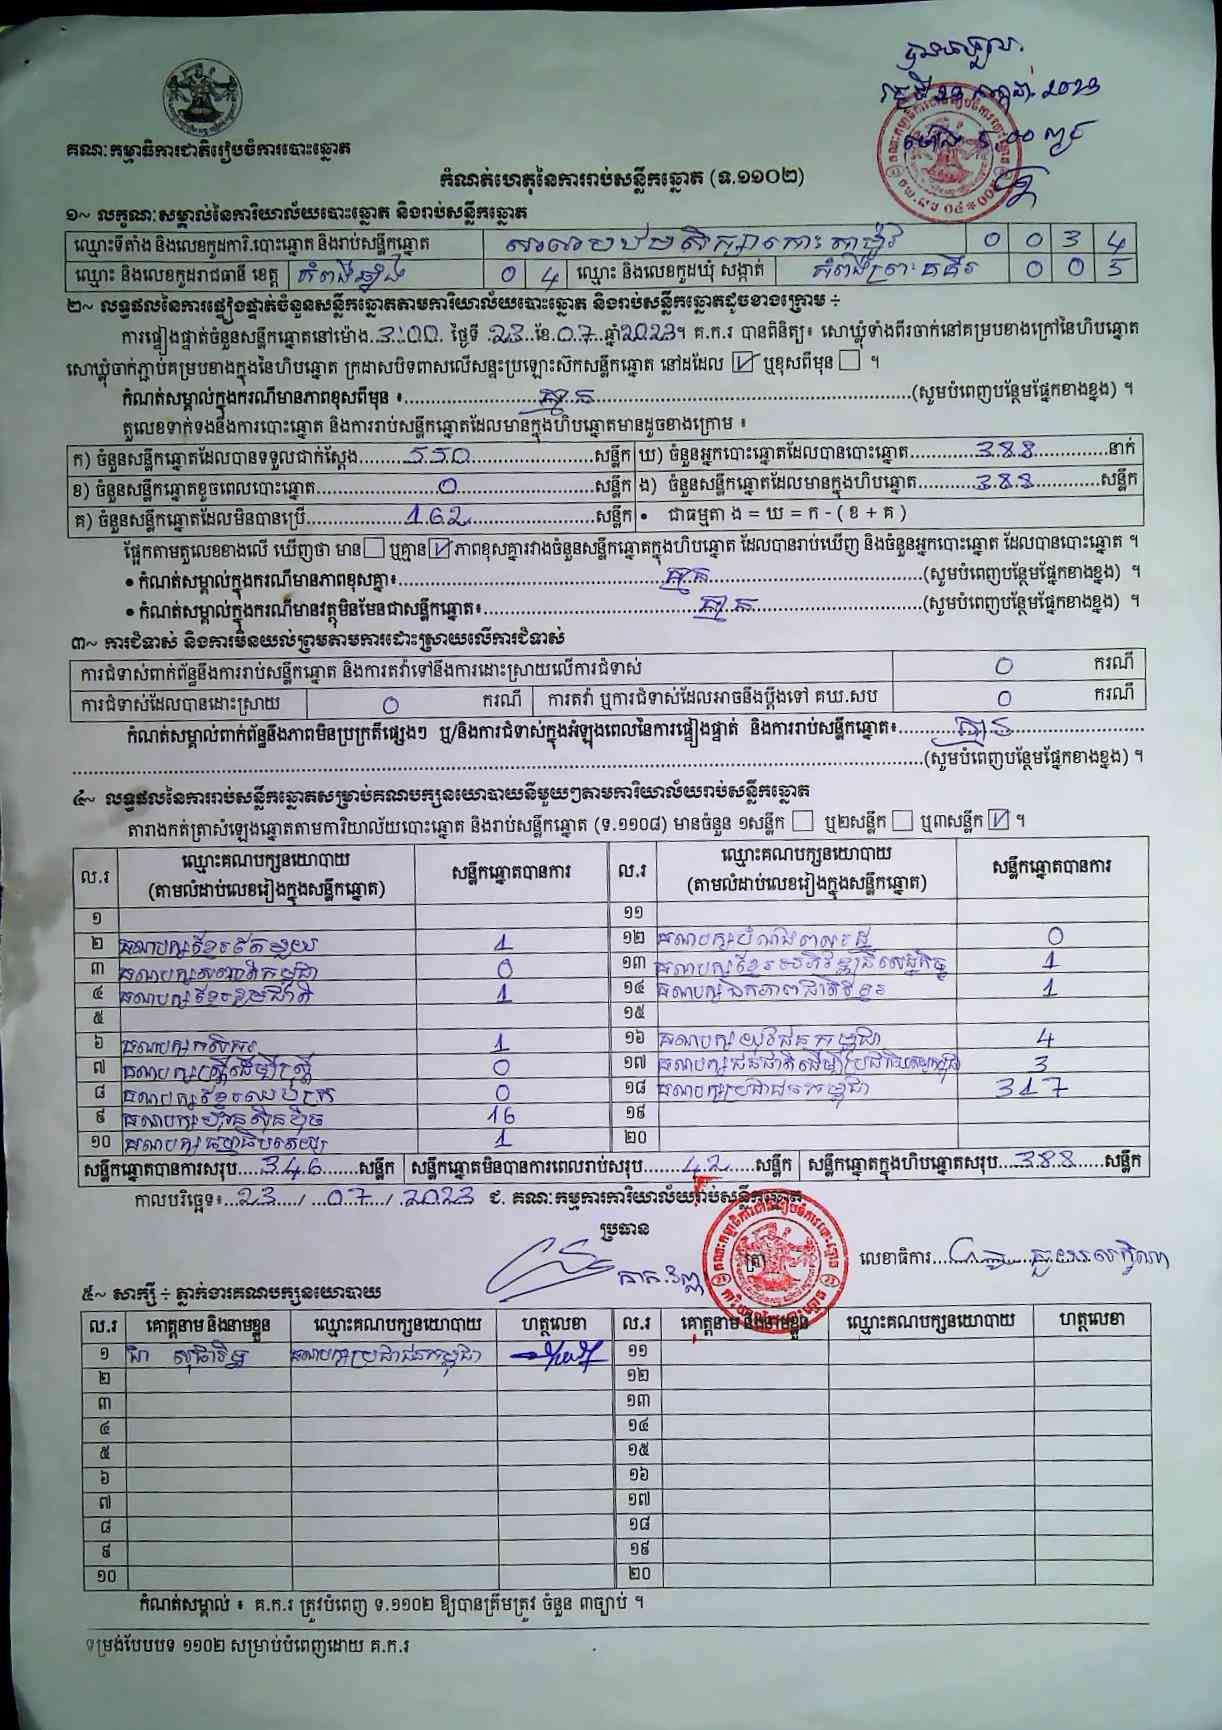 គណៈកម្មាធិការជាតិរៀបចំការបោះឆ្នោត
កំណត់ហេតុនៃការរាប់សន្លឹកឆ្នោត (ទ.១១០២)
១~ លក្ខណៈសម្គាល់នៃការិយាល័យបោះឆ្នោត និងរាប់សន្លឹកឆ្នោត
ឈ្មោះទីតាំង និងលេខកូដការិ.បោះឆ្នោត និងរាប់សន្លឹកឆ្នោត សាលាបឋមសិក្សាកោះតាម៉ូវ 0 0 3 4
ឈ្មោះ និងលេខកូដរាជធានី ខេត្ត កំពង់ឆ្នាំង 0 4 ឈ្មោះ និងលេខកូដឃុំ សង្កាត់ កំពង់ព្រះគគីរ 0 0 5
២~ លទ្ធផលនៃការផ្ទៀងផ្ទាត់ចំនួនសន្លឹកឆ្នោតតាមការិយាល័យបោះឆ្នោត និងរាប់សន្លឹកឆ្នោតដូចខាងក្រោម ៖
ការផ្ទៀងផ្ទាត់ចំនួនសន្លឹកឆ្នោតនៅម៉ោង 3:00 ថ្ងៃទី 23 ខែ 07 ឆ្នាំ 2023។ គ.ក.រ បានពិនិត្យ៖ សោឃ្លុំទាំងពីរចាក់នៅគម្របខាងក្រៅនៃហិបឆ្នោត
សោឃ្លុំចាក់ភ្ជាប់គម្របខាងក្នុងនៃហិបឆ្នោត ក្រដាសបិទពាសលើសន្ទះប្រឡោះស៊កសន្លឹកឆ្នោត នៅដដែល ☑ ឬខុសពីមុន ☐ ។
កំណត់សម្គាល់ក្នុងករណីមានភាពខុសពីមុន ៖ គ្មាន (សូមបំពេញបន្ថែមផ្នែកខាងខ្នង) ។
តួលេខទាក់ទងនឹងការបោះឆ្នោត និងការរាប់សន្លឹកឆ្នោតដែលមានក្នុងហិបឆ្នោតមានដូចខាងក្រោម ៖
ក) ចំនួនសន្លឹកឆ្នោតដែលបានទទួលជាក់ស្ដែង 550 សន្លឹក ឃ) ចំនួនអ្នកបោះឆ្នោតដែលបានបោះឆ្នោត 388 នាក់
ខ) ចំនួនសន្លឹកឆ្នោតខូចពេលបោះឆ្នោត 0 សន្លឹក ង) ចំនួនសន្លឹកឆ្នោតដែលមានក្នុងហិបឆ្នោត 388 សន្លឹក
គ) ចំនួនសន្លឹកឆ្នោតដែលមិនបានប្រើ 162 សន្លឹក • ជាធម្មតា ង = ឃ = ក - ( ខ + គ )
ផ្អែកតាមតួលេខខាងលើ ឃើញថា មាន ☐ ឬគ្មាន ☑ ភាពខុសគ្នារវាងចំនួនសន្លឹកឆ្នោតក្នុងហិបឆ្នោត ដែលបានរាប់ឃើញ និងចំនួនអ្នកបោះឆ្នោត ដែលបានបោះឆ្នោត ។
• កំណត់សម្គាល់ក្នុងករណីមានភាពខុសគ្នា៖ គ្មាន (សូមបំពេញបន្ថែមផ្នែកខាងខ្នង) ។
• កំណត់សម្គាល់ក្នុងករណីមានវត្ថុមិនមែនជាសន្លឹកឆ្នោត៖ គ្មាន (សូមបំពេញបន្ថែមផ្នែកខាងខ្នង) ។
៣~ ការជំទាស់ និងការមិនយល់ព្រមតាមការដោះស្រាយលើការជំទាស់
ការជំទាស់ពាក់ព័ន្ធនឹងការរាប់សន្លឹកឆ្នោត និងការតវ៉ាទៅនឹងការដោះស្រាយលើការជំទាស់ 0 ករណី
ការជំទាស់ដែលបានដោះស្រាយ 0 ករណី ការតវ៉ា ឬការជំទាស់ដែលអាចនឹងប្ដឹងទៅ គឃ.សប 0 ករណី
កំណត់សម្គាល់ពាក់ព័ន្ធនឹងភាពមិនប្រក្រតីផ្សេងៗ ឬ/និងការជំទាស់ក្នុងអំឡុងពេលនៃការផ្ទៀងផ្ទាត់ និងការរាប់សន្លឹកឆ្នោត៖ គ្មាន
(សូមបំពេញបន្ថែមផ្នែកខាងខ្នង) ។
៤~ លទ្ធផលនៃការរាប់សន្លឹកឆ្នោតសម្រាប់គណបក្សនយោបាយនីមួយៗតាមការិយាល័យរាប់សន្លឹកឆ្នោត
តារាងកត់ត្រាសំឡេងឆ្នោតតាមការិយាល័យបោះឆ្នោត និងរាប់សន្លឹកឆ្នោត (ទ.១១០៨) មានចំនួន ១សន្លឹក ☐ ឬ២សន្លឹក ☐ ឬ៣សន្លឹក ☑ ។
ល.រ ឈ្មោះគណបក្សនយោបាយ (តាមលំដាប់លេខរៀងក្នុងសន្លឹកឆ្នោត) សន្លឹកឆ្នោតបានការ ល.រ ឈ្មោះគណបក្សនយោបាយ (តាមលំដាប់លេខរៀងក្នុងសន្លឹកឆ្នោត) សន្លឹកឆ្នោតបានការ
១ ១១
២ គណបក្សខ្មែរតែមួយ 1 ១២ គណបក្សសំបុកឃ្មុំ 0
៣ គណបក្ស 0 ១៣ គណបក្សខ្មែរអភិវឌ្ឍន៍សេដ្ឋកិច្ច 1
៤ គណបក្សខ្មែររួបរួមជាតិ 1 ១៤ គណបក្សឯកភាពជាតិខ្មែរ 1
៥ ១៥
៦ គណបក្សកសិករ 1 ១៦ គណបក្សយុវជនកម្ពុជា 4
៧ គណបក្សស្ត្រីដើម្បីស្ត្រី 0 ១៧ គណបក្សជនជាតិដើមប្រជាធិបតេយ្យកម្ពុជា 3
៨ គណបក្សខ្មែរឈប់ក្រ 0 ១៨ គណបក្សប្រជាជនកម្ពុជា 317
៩ គណបក្សហ៊្វុនស៊ិនប៉ិច 16 ១៩
១០ គណបក្សធម្មាធិបតេយ្យ 1 ២០
សន្លឹកឆ្នោតបានការសរុប 346 សន្លឹក សន្លឹកឆ្នោតមិនបានការពេលរាប់សរុប 42 សន្លឹក សន្លឹកឆ្នោតក្នុងហិបឆ្នោតសរុប 388 សន្លឹក
កាលបរិច្ឆេទ៖ 23 / 07 / 2023 ជ. គណៈកម្មការការិយាល័យរាប់សន្លឹកឆ្នោត
ប្រធាន
ត្រា លេខាធិការ
៥~ សាក្សី ÷ ភ្នាក់ងារគណបក្សនយោបាយ
ល.រ គោត្តនាម និងនាមខ្លួន ឈ្មោះគណបក្សនយោបាយ ហត្ថលេខា ល.រ គោត្តនាម និងនាមខ្លួន ឈ្មោះគណបក្សនយោបាយ ហត្ថលេខា
១ គណបក្សប្រជាជនកម្ពុជា ១១
២ ១២
៣ ១៣
៤ ១៤
៥ ១៥
៦ ១៦
៧ ១៧
៨ ១៨
៩ ១៩
១០ ២០
កំណត់សម្គាល់ ៖ គ.ក.រ ត្រូវបំពេញ ទ.១១០២ ឱ្យបានត្រឹមត្រូវ ចំនួន ៣ច្បាប់ ។
ទម្រង់បែបបទ ១១០២ សម្រាប់បំពេញដោយ គ.ក.រ